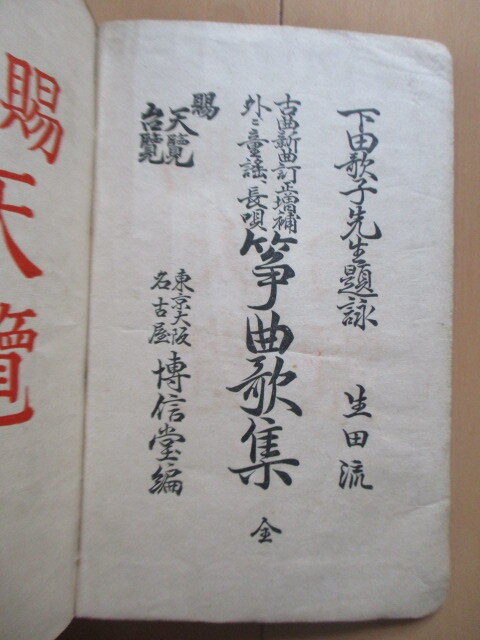 下田歌子先生題詠　生田流
古曲新曲訂正増補
外ニ童謡、長唄
箏曲歌集　全
賜
天覧
台覧
東京大阪
名古屋
博信堂編
賜天覽